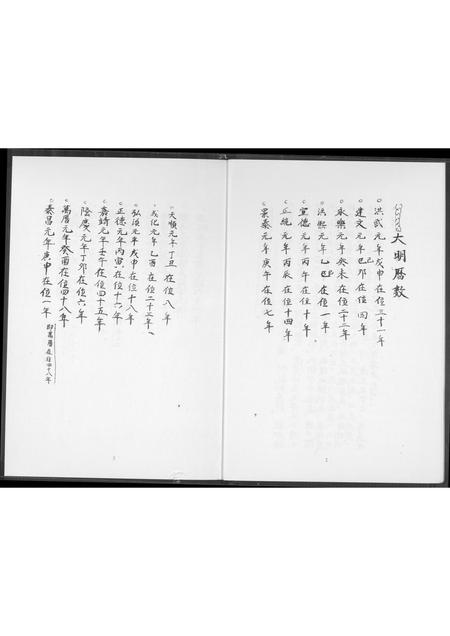 大明曆數
○洪武元年戊申在位三十一年
○建文元年己卯在位四年
○永樂元年癸未在位二十二年
○洪熙元年乙巳在位一年
○宣德元年丙午在位十年
○正統元年丙辰在位十四年
○景泰元年庚午在位七年
2
○天順元年丁丑在位八年
○成化元年乙酉在位二十三年
○弘治元年戊申在位十八年
○正德元年丙寅在位十六年
○嘉靖元年壬午在位四十五年
○隆慶元年丁卯在位六年
○萬曆元年癸酉在位四十八年
○泰昌元年庚申在位一年 即萬曆在位四十八年
3